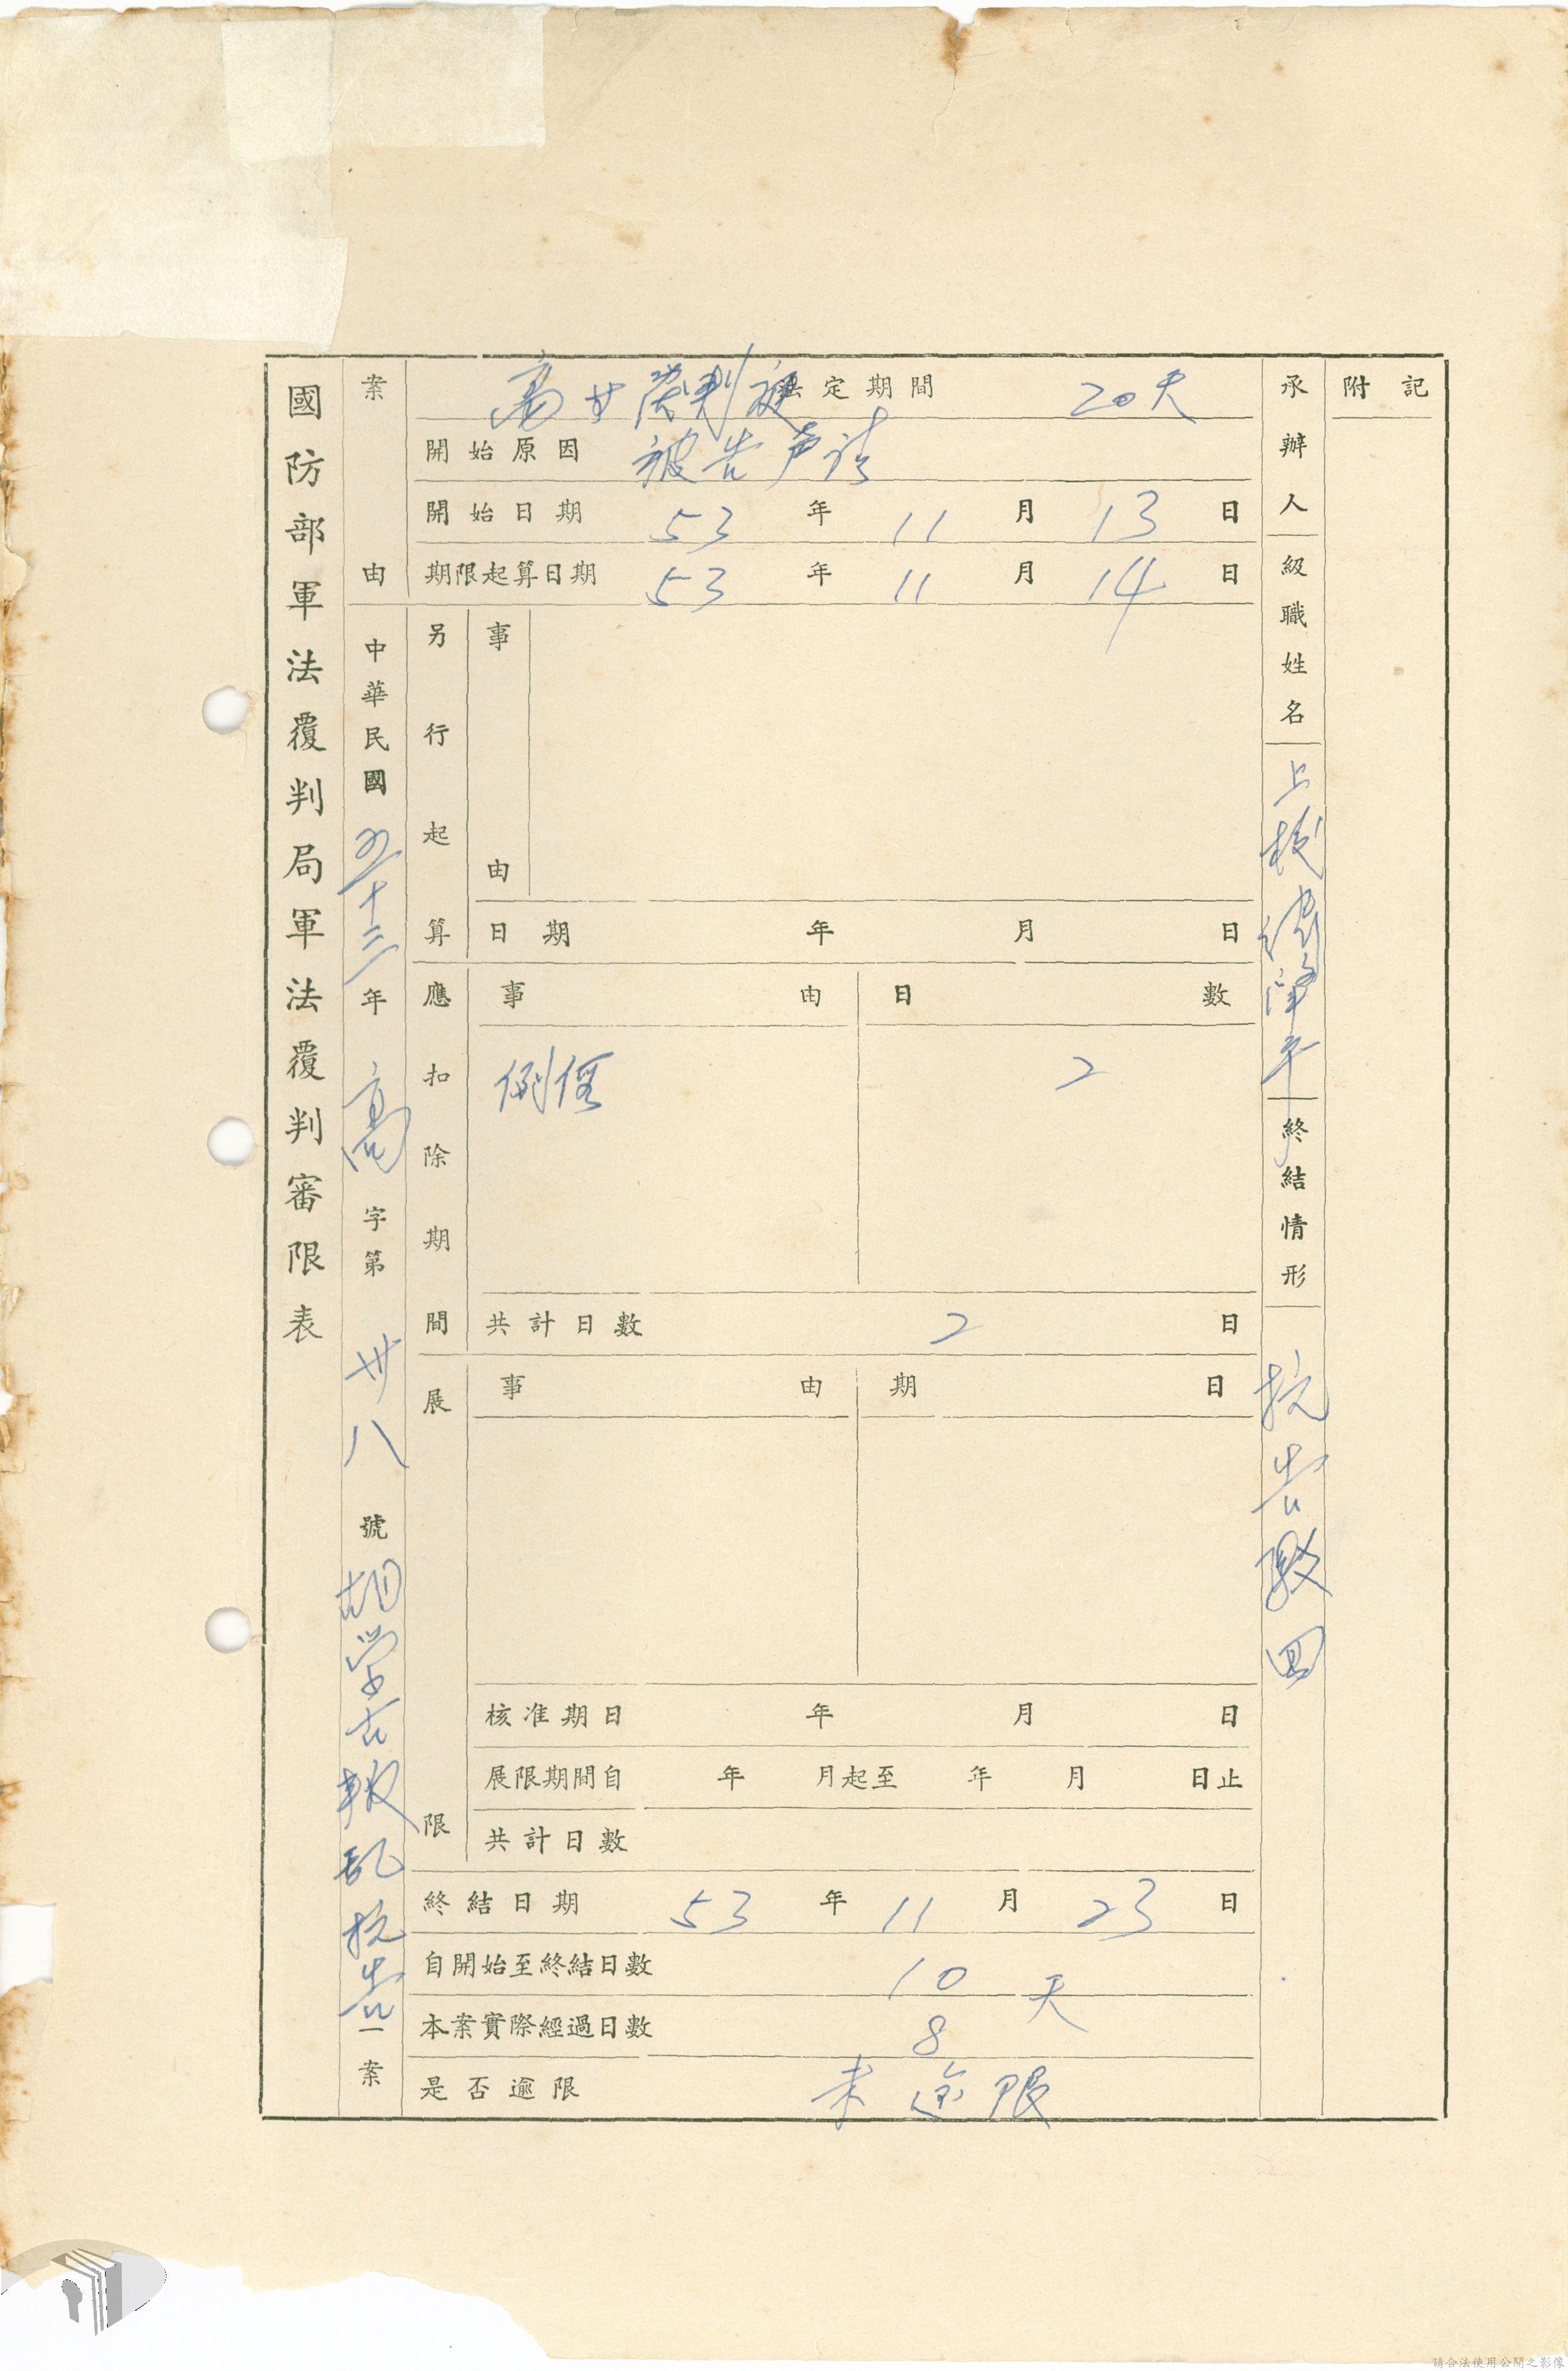 國防部軍法覆判局軍法覆判審限表
案由
中華民國五十三年高字第卅八號胡学古叛乱抗告一案
高 判庭 法定期間 20天
開始原因 被告声请
開始日期 53年11月13日
期限起算日期 53年11月14日
另行起算
事由
日期 年 月 日
應扣除期間
事由 日數
例假 2
共計日數 2 日
展限
事由 期日
核准期日 年 月 日
展限期間自 年 月起至 年 月 日止
共計日數
終結日期 53年11月23日
自開始至終結日數 10天
本案實際經過日數 8
是否逾限 未逾限
承辦人級職姓名 上校
終結情形 抗告駁回
附記
請合法使用公開之影像